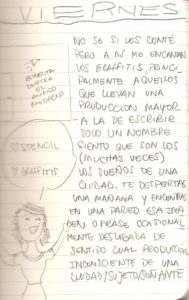 VIERNES
NO SE SI LES CONTÉ
PERO A MI ME ENCANTAN
LOS GRAFFITIS, PRINCI
PALMENTE AQUELLOS
QUE LLEVAN UNA
PRODUCCION MAYOR
A LA DE ESCRIBIR
SOLO UN NOMBRE.
SIENTO QUE SON LOS
(MUCHAS VECES)
LOS SUEÑOS DE UNA
CIUDAD. TE DESPERTAS
UNA MAÑANA Y ENCONTRAS
EN UNA PARED ESA IMA
GEN O FRASE OCASIONAL
MENTE DESLIGADA DE
SENTIDO CUAL PRODUCCION
INCONSCIENTE DE UNA
CIUDAD/SUJETO/SOÑANTE
EL
MUNDO
STENCIL
GRAFFITIS